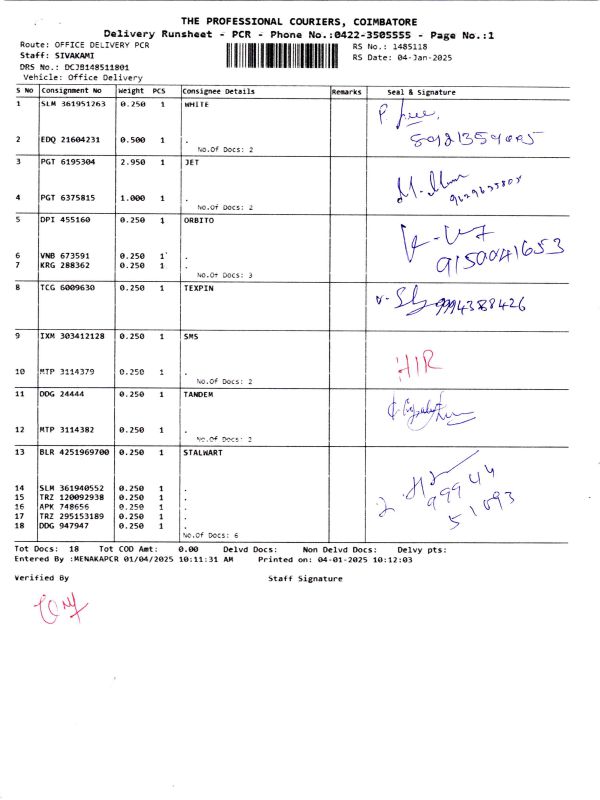 THE PROFESSIONAL COURIERS, COIMBATORE
Delivery Runsheet - PCR - Phone No.:0422-3505555 - Page No.:1
Route: OFFICE DELIVERY PCR RS No.: 1485118
Staff: SIVAKAMI RS Date: 04-Jan-2025
DRS No.: DCJB148511801
Vehicle: Office Delivery
S No Consignment No Weight PCS Consignee Details Remarks Seal & Signature
1 SLM 361951263 0.250 1 WHITE
2 EDQ 21604231 0.500 1 .
No.Of Docs: 2
3 PGT 6195304 2.950 1 JET
4 PGT 6375815 1.000 1 .
No.Of Docs: 2
5 DPI 455160 0.250 1 ORBITO
6 VNB 673591 0.250 1 .
9150041653
7 KRG 288362 0.250 1 .
No.Of Docs: 3
8 TCG 6009630 0.250 1 TEXPIN
9994388426
9 IXM 303412128 0.250 1 SMS
HIR
10 MTP 3114379 0.250 1 .
No.Of Docs: 2
11 DDG 24444 0.250 1 TANDEM
12 MTP 3114382 0.250 1 .
No.Of Docs: 2
13 BLR 4251969700 0.250 1 STALWART
99944
14 SLM 361940552 0.250 1 .
15 TRZ 120092938 0.250 1 .
51093
16 APK 748656 0.250 1 .
17 TRZ 295153189 0.250 1 .
18 DDG 947947 0.250 1 .
No.Of Docs: 6
Tot Docs: 18 Tot COD Amt: 0.00 Delvd Docs: Non Delvd Docs: Delvy pts:
Entered By :MENAKAPCR 01/04/2025 10:11:31 AM Printed on: 04-01-2025 10:12:03
Verified By Staff Signature